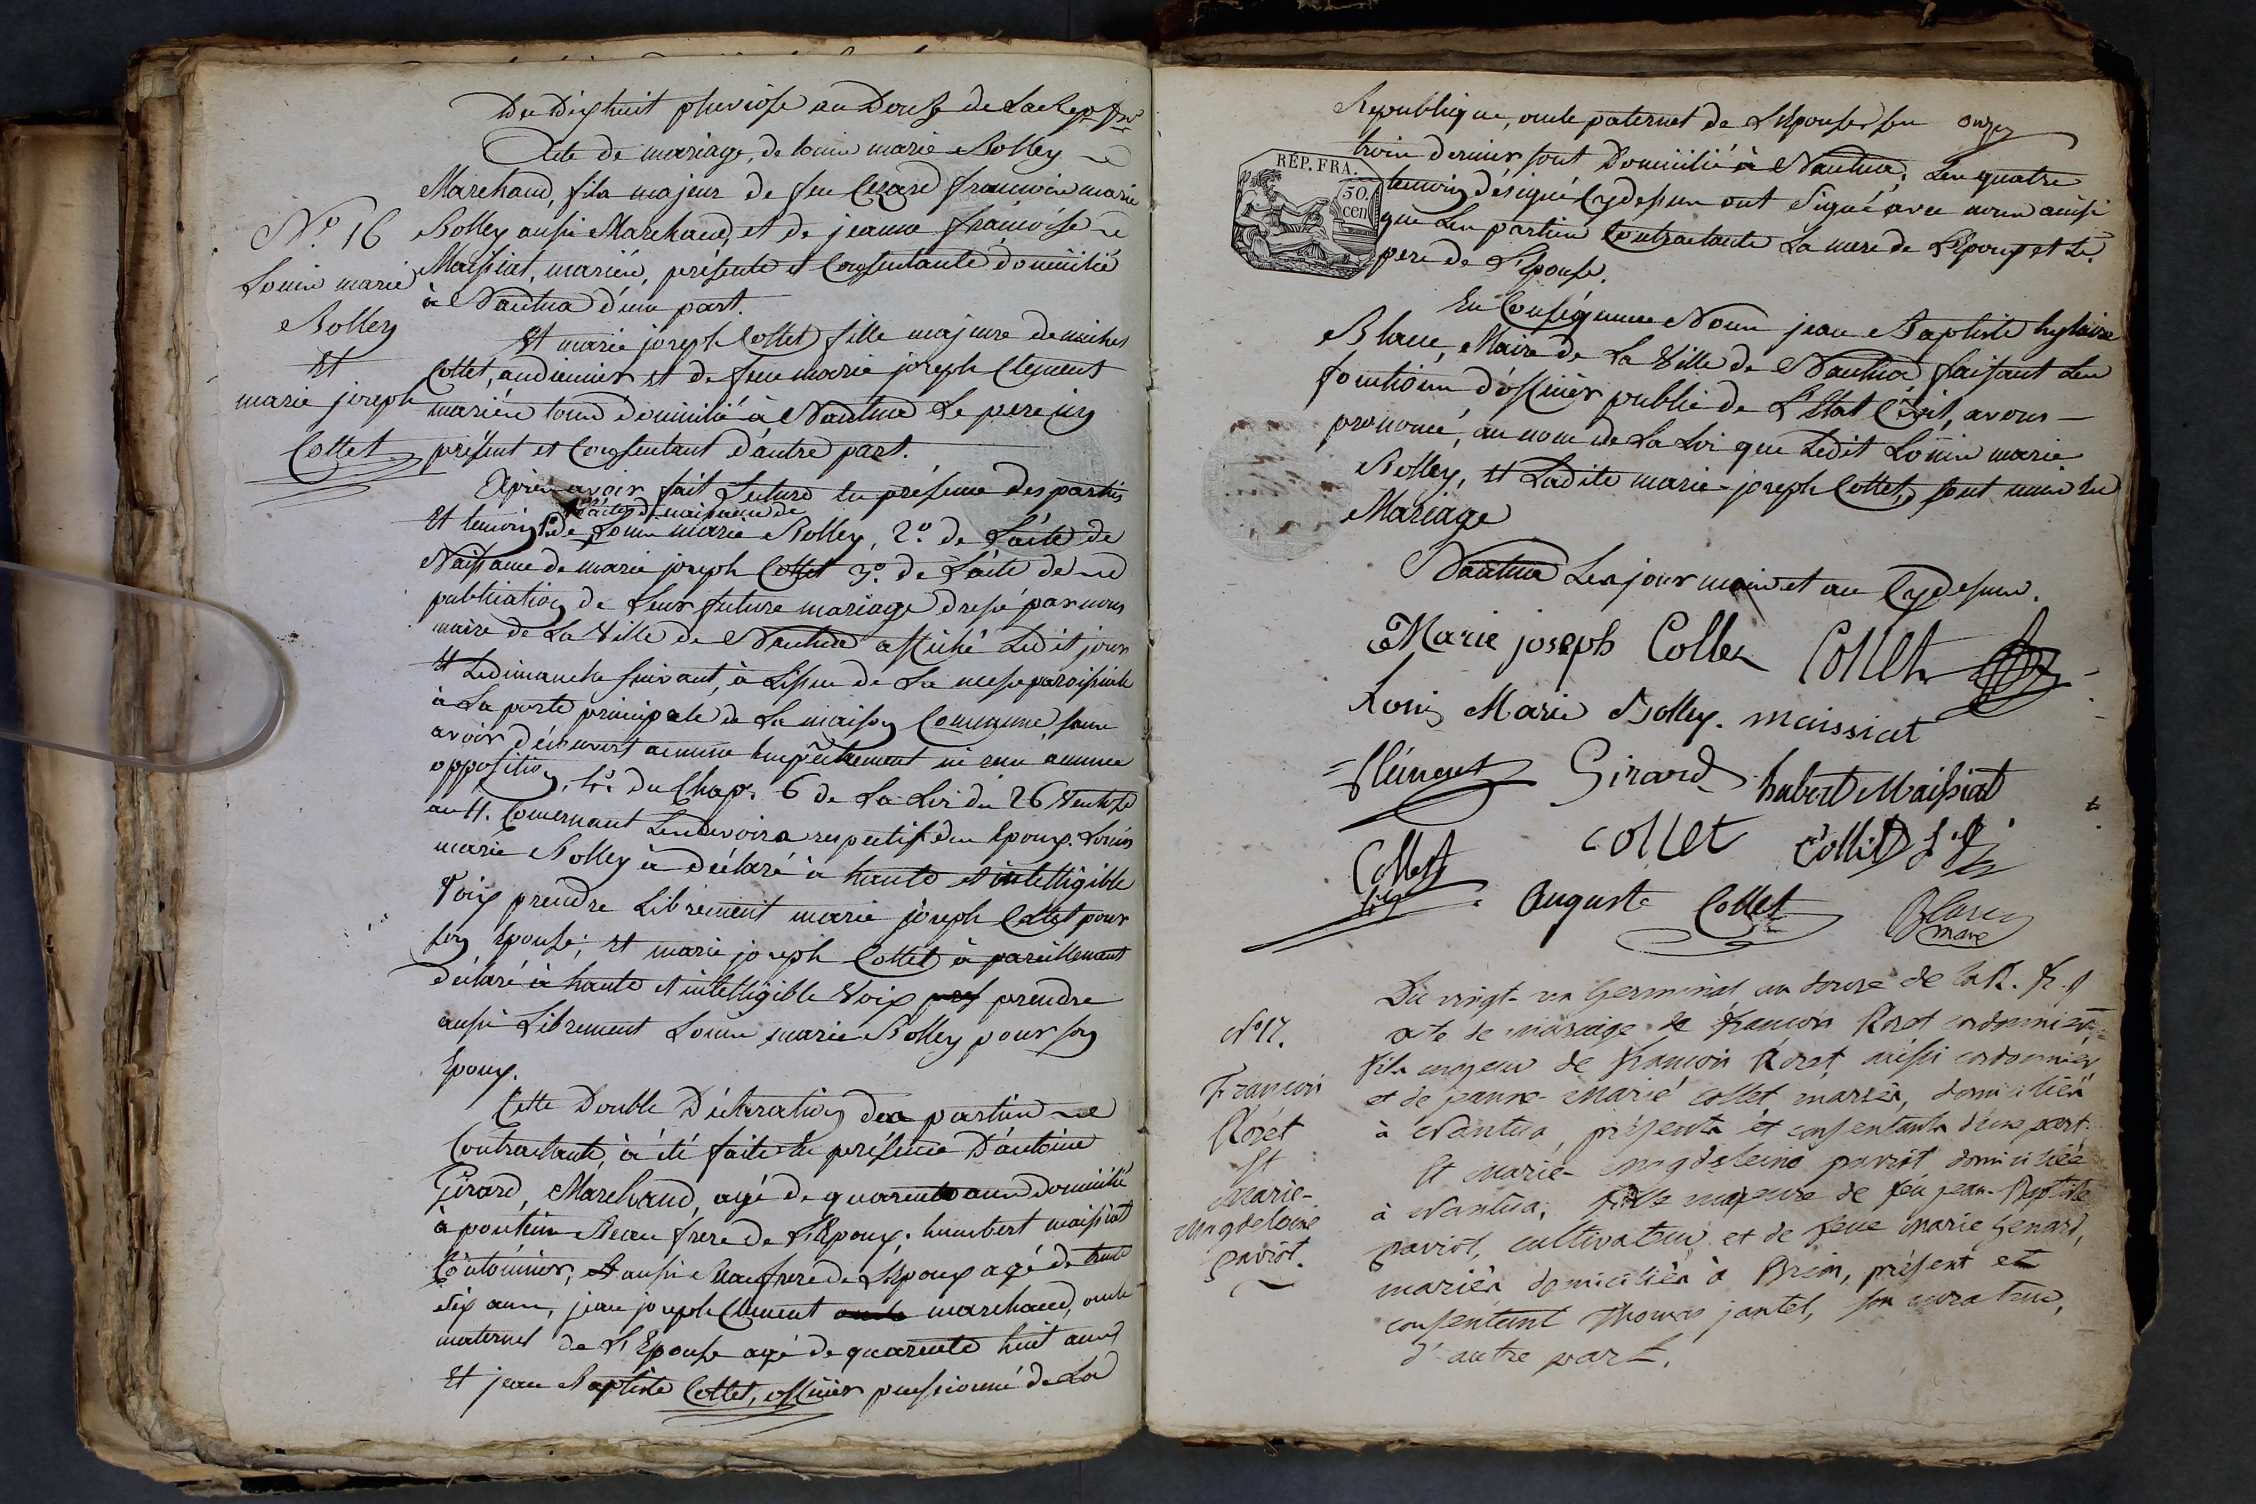 Du Dixhuit pluviose an Douse de La Rep. fr.
Acte de mariage, de Louis marie Bolley
Marchand, fils majeur de feu Cezard francois marie
N.° 16
Bolley aussi Marchand, et de jeanne françoise
Louis marie
Maissiat, mariés, présente et Consentante domicilié
Bolley
à Nantua d'une part.
Et
Et marie joseph Collet fille majeure de michel
marie joseph
Collet, audiencier et de feue marie joseph Clement
Collet
mariés tous domicilié à Nantua Le pere icy
présent et Consentant d'autre part.
Après avoir fait Lecture en présence des partis
Et temoins 1.° de L'acte de naissance de
Louis marie Bolley, 2.° de L'acte de
Naissance de marie joseph Collet 3.° de L'acte de
publication de Leur future mariage dressé par nous
maire de La Ville de Nantua affiché Ledit jour
Et Ledimanche suivant, à L'issue de La messe paroissiale
à La porte principale de La maison Commune, sans
avoir découvert aucune Empêchement ni eu aucune
opposition, 4.° du Chap. 6 de La Loi du 26 Ventose
an 11. Concernant Les devoirs respectifs des Epoux. Louis
marie Bolley à déclaré à haute et intelligible
Voix prendre Librement marie joseph Collet pour
son Epouse; Et marie joseph Collet à pareillement
déclaré à haute et intelligible Voix prendre
aussi Librement Louis marie Bolley pour son
Epoux.
Cette Double Déclaration des parties
Contractante, à été faite en présence D'antoine
Girard, Marchand, agé de quarente ans domicilié
à poncin Beau frere de L'Epoux, humbert maissiat
Cotonnier, Et aussi Beaufrere de L'Epoux agé de trente
six ans, jean joseph Clement marchand, oncle
maternel de L'Epouse agé de quarente huit ans
Et jean Baptiste Collet, officier pensionné de La
Republique, oncle paternel de L'Epouse les onze
REP. FRA.
50. cen
trois derniers sont Domicilié à Nantua; Les quatre
temoins désigné Cydessus ont Signé avec nous ainsi
que Les parties Contractante La mere de L'Epoux et Le
pere de L'Epouse.
En Conséquence Nous jean Baptiste hylaire
Blanc, Maire de La Ville de Nantua faisant Les
fonctions d'officier public de L'Etat Civil, avons
prononcé, au nom de La Loi que Ledit Louis marie
Bolley, Et Ladite marie-joseph Collet, sont unis en
Mariage
Nantua Les jour mois et an Cydessus.
Marie joseph Collet Collet
Louis Marie Bolley. maissiat
Clément Girard humbert Maissiat
collet Collet
Collet
fils Auguste Collet Blanc
mare
Du vingt-un Germinal an douze de la R. fr.
N.° 17.
acte de mariage de francois Roret cordonnier
fils majeur de francois Roret aussi cordonnier
Francois
et de jeanne-marie collet mariés, domiciliés
Rorét
à Nantua, présents et consentants d'une part.
Et
Et marie-magdeleine paviot domiciliée
Marie-
à Nantua, fille majeure de feu jean-Baptiste
Magdeleine
paviot, cultivateur et de feue marie Genard,
paviot.
mariés domiciliés à Brion, présent et
consentant Thomas jantet, son curateur,
d'autre part.